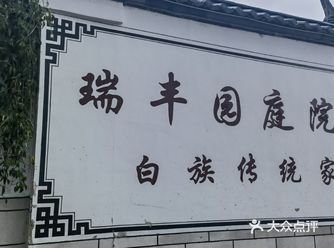 瑞丰园庭院
白族传统家
大众点评